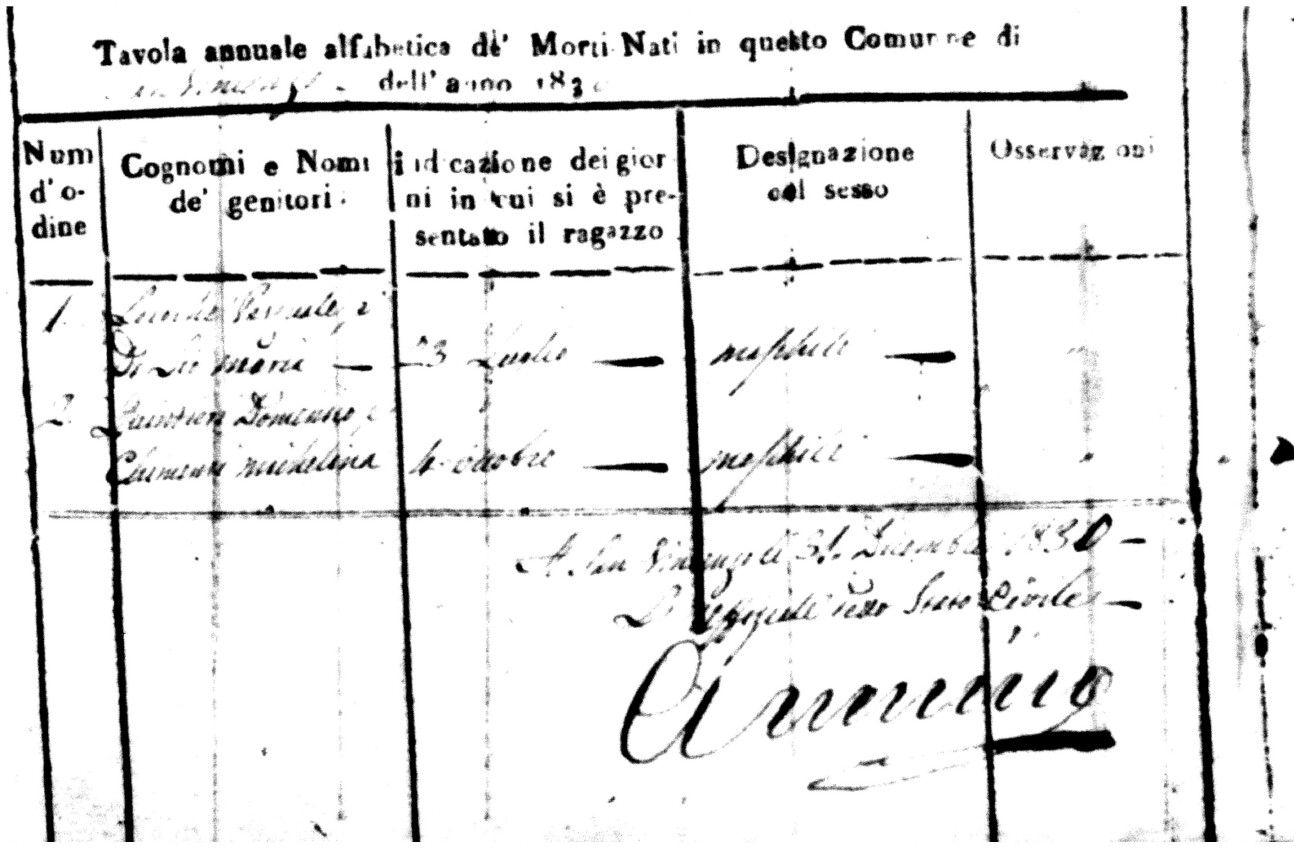 Tavola annuale alfabetica de' Morti Nati in questo Comune di
dell'anno 1830
Num d'o-dine
Cognomi e Nomi de' genitori.
indicazione dei giorni in cui si è pre-sentato il ragazzo
Designazione del sesso
Osservazioni
1.
Pasquale, e
Di Leo Maria — 23 Luglio — maschile —
2.
Domenico, e
Clemente Michelina 4. ottobre — maschile —
A San Vincenzo li 31. Dicembre 1830 —
Stato Civile —